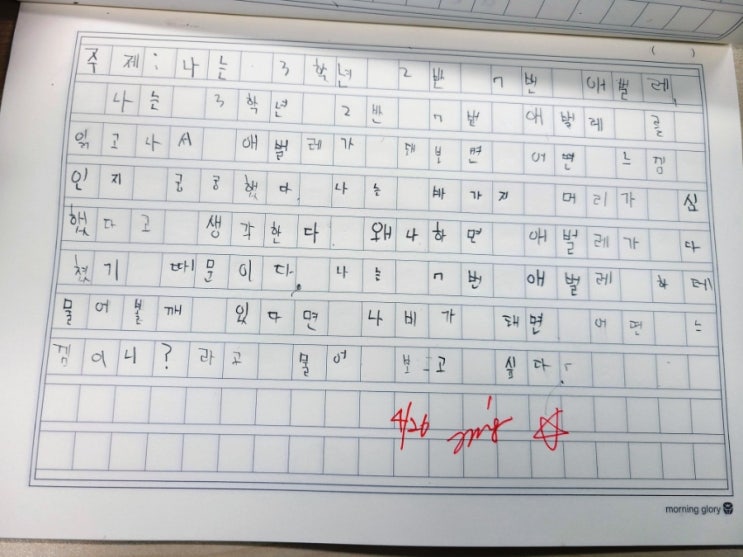 주제: 나는 3학년 2반 7번 애벌레,
나는 3학년 2반 7번 애벌레 를
읽고나서 애벌레가 돼보면 어떤 느낌
인지 궁궁했다. 나는 바가지 머리가 심
했다고 생각한다 왜냐하면 애벌레가 다
쳤기 때문이다. 나는 7번 애벌레 하테
물어볼께 있다면 나비가 돼면 어떤 느
낌이니? 라고 물어 보고 싶다.
4/26
morning glory